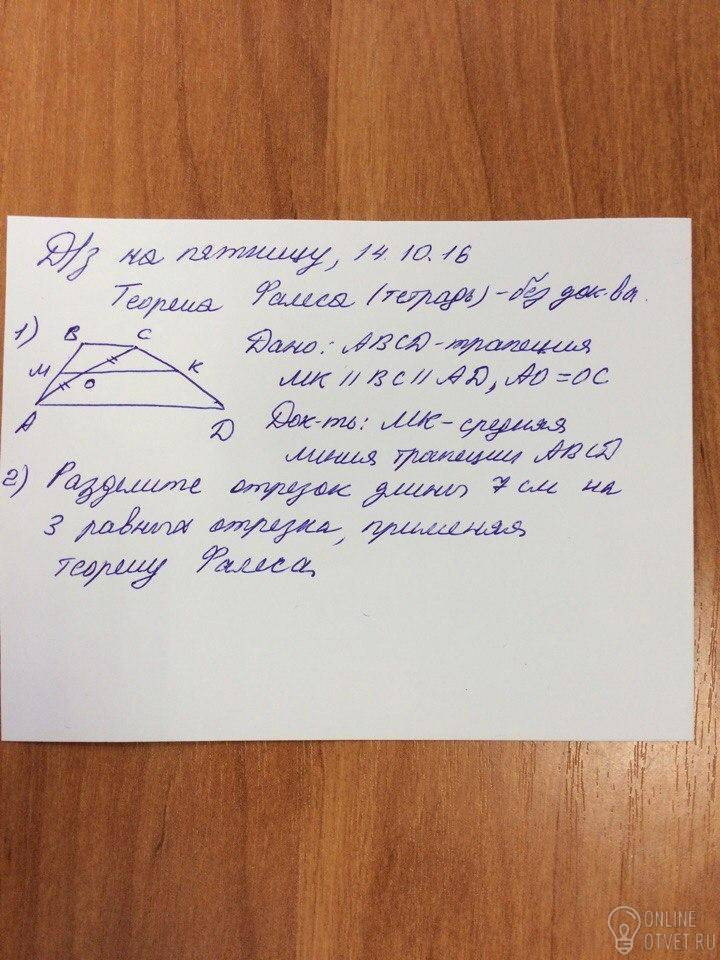 Д/з на пятницу, 14.10.16
Теорема Фалеса (тетрадь) - без док-ва.
1)
B C
M K
O
A D
Дано: ABCD - трапеция
MK || BC || AD, AO = OC
Док-ть: MK - средняя
линия трапеции ABCD
2) Разделите отрезок длины 7 см на
3 равных отрезка, применяя
теорему Фалеса.
ONLINE
OTVET.RU